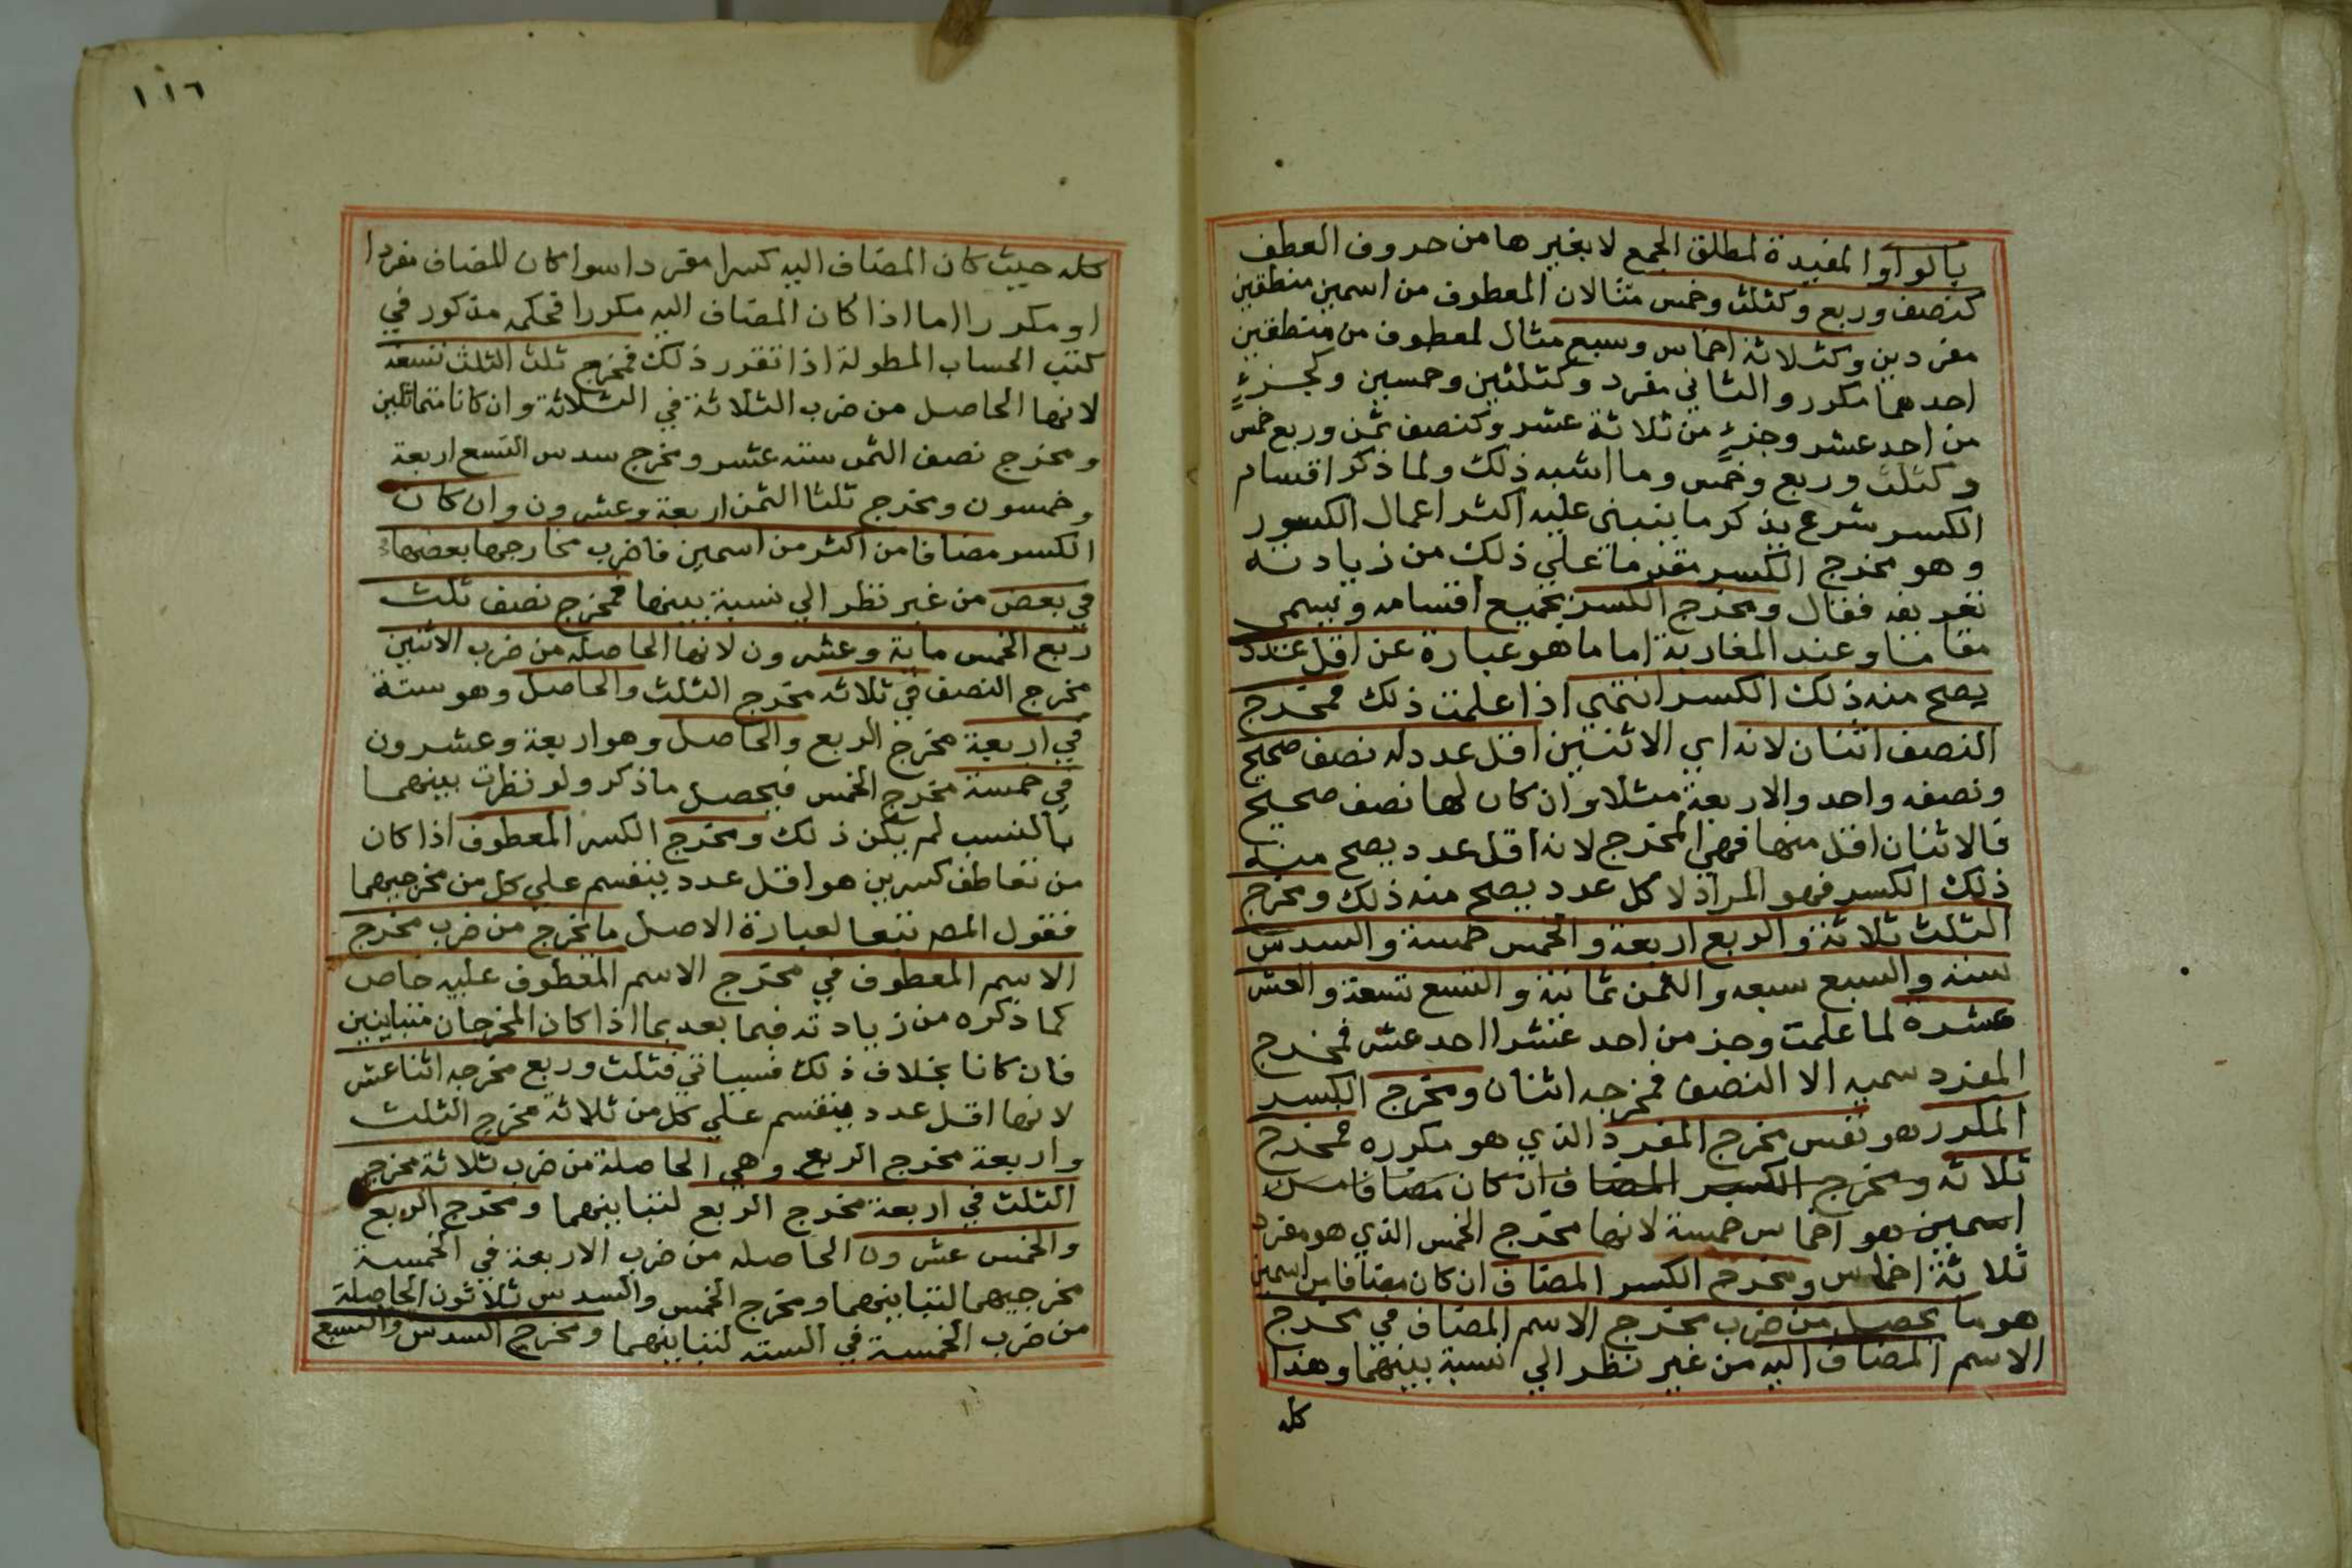 بالواو المفيدة لمطلق الجمع لا بغيرها من حروف العطف
كنصف وربع وكثلث وخمس مثالان المعطوف من اسمين منطقين
مفردين وكثلاثة اخماس وسبع مثال لمعطوف من منطقين
احدهما مكرر والثاني مفرد وكثلثين وخمسين وكجزءٍ
من احد عشر وجزءٍ من ثلاثة عشر وكنصف ثمن وربع خمس
وكثلث وربع وخمس وما اشبه ذلك ولما ذكر اقسام
الكسر شرع يذكر ما ينبني عليه اكثر اعمال الكسور
وهو مخرج الكسر مقدما على ذلك من زيادته
تعريفه فقال ومخرج الكسر بجميع اقسامه ويسمى
مقاما وعند المغاربة اماما هو عبارة عن اقل عدد
يصح منه ذلك الكسر انتهي اذا علمت ذلك فمخرج
النصف اثنان لانه اي الاثنين اقل عدد له نصف صحيح
ونصفه واحد والاربعة مثلا وان كان لها نصف صحيح
فالاثنان اقل منها فهي المخرج لانه اقل عدد يصح منه
ذلك الكسر فهو المراد لا كل عدد يصح منه ذلك ومخرج
الثلث ثلاثة والربع اربعة والخمس خمسة والسدس
سته والسبع سبعه والثمن ثمانية والتسع تسعة والعشر
عشره لما علمت وجز من احد عشر احد عشر فمخرج
المفرد سميه الا النصف فمخرجه اثنان ومخرج الكسر
المكرر هو نفس مخرج المفرد الذي هو مكرره فمخرج
ثلاثه ومخرج الكسر المضاف ان كان مضافا من
اسمين هو اخماس خمسة لانها مخرج الخمس الذي هو مفرد
ثلاثة اخماس ومخرج الكسر المضاف ان كان مضافا من اسمين
هو ما يحصل من ضرب مخرج الاسم المضاف في مخرج
الاسم المضاف اليه من غير نظر الي نسبة بينهما وهذا
كله
١١٦
كله حيث كان المضاف اليه كسرا مفردا سوا كان المضاف مفردا
او مكررا اما اذا كان المضاف اليه مكررا فحكمه مذكور في
كتب الحساب المطولة اذا تقرر ذلك فمخرج ثلث الثلث تسعة
لانها الحاصل من ضرب الثلاثة في الثلاثة وان كانا متماثلين
ومخرج نصف الثمن سته عشر ومخرج سدس التسع اربعة
وخمسون ومخرج ثلثا الثمن اربعة وعشرون وان كان
الكسر مضافا من اكثر من اسمين فاضرب مخارجها بعضها
في بعض من غير نظر الي نسبة بينها فمخرج نصف ثلث
ربع الخمس ماية وعشرون لانها الحاصله من ضرب الاثنين
مخرج النصف في ثلاثه مخرج الثلث والحاصل وهو ستة
في اربعة مخرج الربع والحاصل وهو اربعة وعشرون
في خمسة مخرج الخمس فيحصل ما ذكر ولو نظرت بينهما
بالنسب لم يكن ذلك ومخرج الكسر المعطوف اذا كان
من تعاطف كسرين هو اقل عدد ينقسم علي كل من مخرجيهما
فقول المصـ تبعا لعبارة الاصل ما يخرج من ضرب مخرج
الاسم المعطوف في مخرج الاسم المعطوف عليه خاص
كما ذكره من زيادته فيما بعد بما اذا كان المخرجان متباينين
فان كانا بخلاف ذلك فسياتي فثلث وربع مخرجه اثنا عشر
لانها اقل عدد ينقسم علي كل من ثلاثة مخرج الثلث
واربعة مخرج الربع وهي الحاصلة من ضرب ثلاثة مخرج
الثلث في اربعة مخرج الربع لتباينهما ومخرج الربع
والخمس عشرون الحاصله من ضرب الاربعة في الخمسة
مخرجيهما لتباينهما ومخرج الخمس والسدس ثلاثون الحاصلة
من ضرب الخمسة في الستة لتباينهما ومخرج السدس والتسع